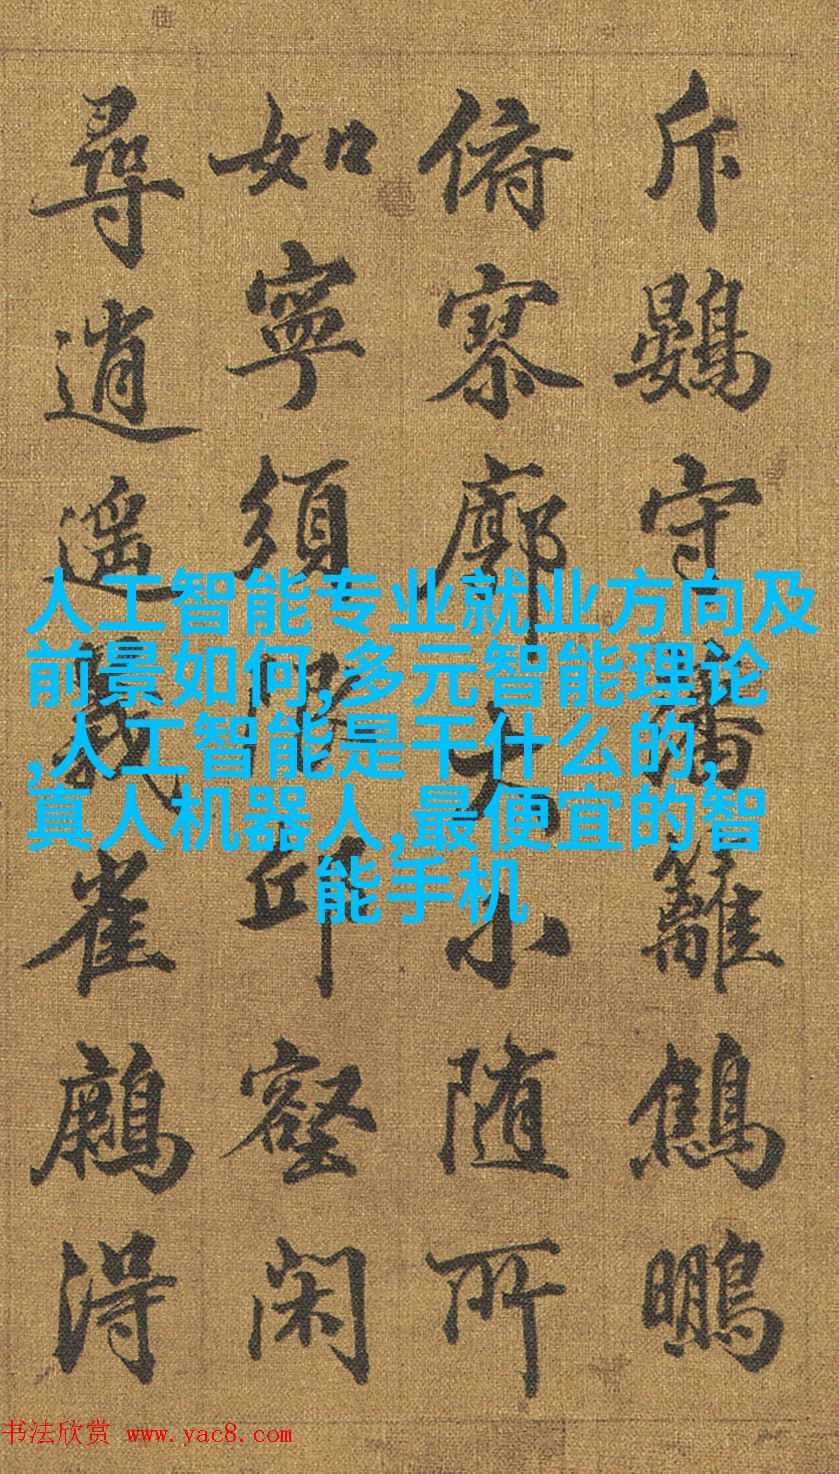 斥鷃守籬鷦鵬
俯寥廓大小随所
如寧須限邱壑閑
尋逍遥雀得
人工智能专业就业方向及
前景如何,多元智能理论
,人工智能是干什么的,
真人机器人,最便宜的智
能手机
书法欣赏 www.yac8.com